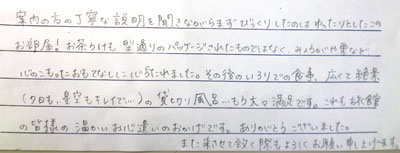 案内の方の丁寧な説明を聞きながらまずびっくりしたのはゆったりとしたこの
お部屋！お茶うけも型通りのパッケージされたものではなく、みょうがや栗など
心のこもったおもてなしに心うたれました。その後のいろりでの食事、広くて絶景
(夕日も、星空もキレイで…)の貸切り風呂…もう大々満足です。これも旅館
の皆様の温かいお心遣いのおかげです。ありがとうございました。
また来させて頂く際もよろしくお願い申し上げます。